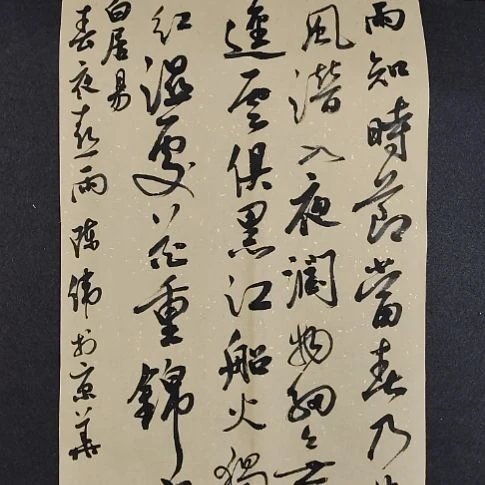 雨知時節當春乃
風潜入夜潤物細
逕雲俱黑江船火獨
紅濕處花重錦
白居易
春夜喜雨陈偉於京華